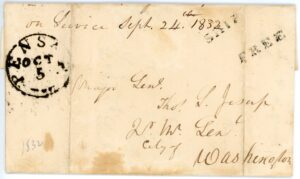 on Service Sept. 24th 1832
SHIP
FREE
PENSA
OCT
5
Major Genl.
Thos S. Jesup
Qr Mr Genl
City of
Washington
1832